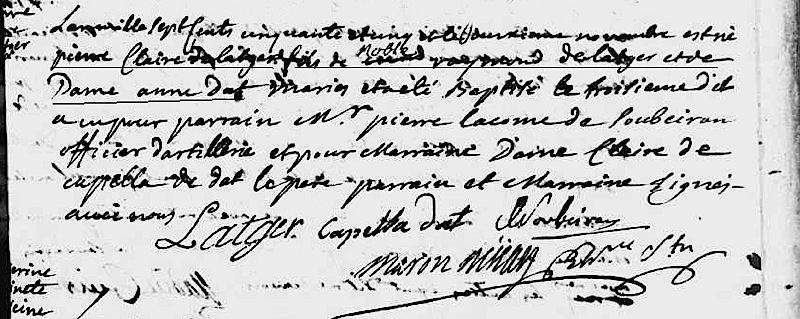 L'an mille sept cents cinquante et cinq et le deuxieme novembre est né
pierre Claire de latger fils de noble raymond de latger et de
Dame anne dat mariés et a été Baptisé le troisieme dit
a eu pour parrain Mr. pierre lacome de Soubeiran
officier d'artillerie et pour Marraine Dame Claire de
capella de dat le pere parrain et Marraine signés
avec nous
Latger Capella dat Soubeiran